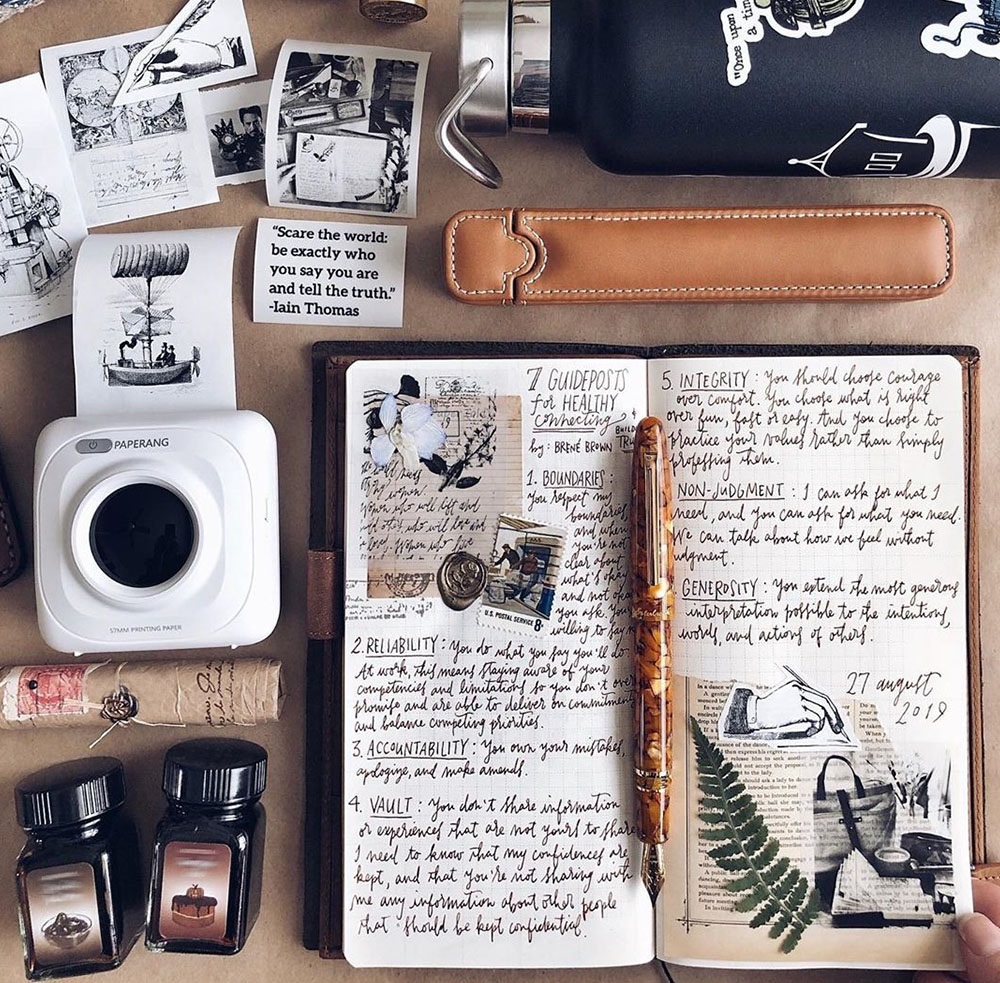 "Once upon
a time"
"Scare the world:
be exactly who
you say you are
and tell the truth."
-Iain Thomas
PAPERANG
57MM PRINTING PAPER
7 GUIDEPOSTS
for HEALTHY
connecting
&
BUILD
by: BRENÉ BROWN
1. BOUNDARIES:
You respect my
boundaries
and when
you're not
clear about
what's okay
and not
you ask. You
willing to say
women
Women who will lift and
who will love and
Women who
U.S. POSTAL SERVICE 8¢
2. RELIABILITY: You do what you say you'll do.
At work, this means staying aware of your
competencies and limitations so you don't over
promise and are able to deliver on commitments
and balance competing priorities.
3. ACCOUNTABILITY: You own your mistakes,
apologize, and make amends.
4. VAULT: You don't share information
or experiences that are not yours to share
I need to know that my confidences are
kept, and that you're not sharing with
me any information about other people
that should be kept confidential.
5. INTEGRITY: You should choose courage
over comfort. You choose what is right
over fun, fast or easy. And you choose to
practice your values rather than simply
professing them.
NON-JUDGMENT: I can ask for what I
need, and you can ask for what you need.
We can talk about how we feel without
judgment.
GENEROSITY: You extend the most generous
interpretation possible to the intentions,
words, and actions of others.
27 august
2019